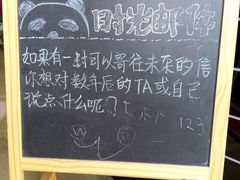 时光邮阵
如果有一封可以寄往未来的信
你想对数年后的TA或自己
说点什么呢?
123